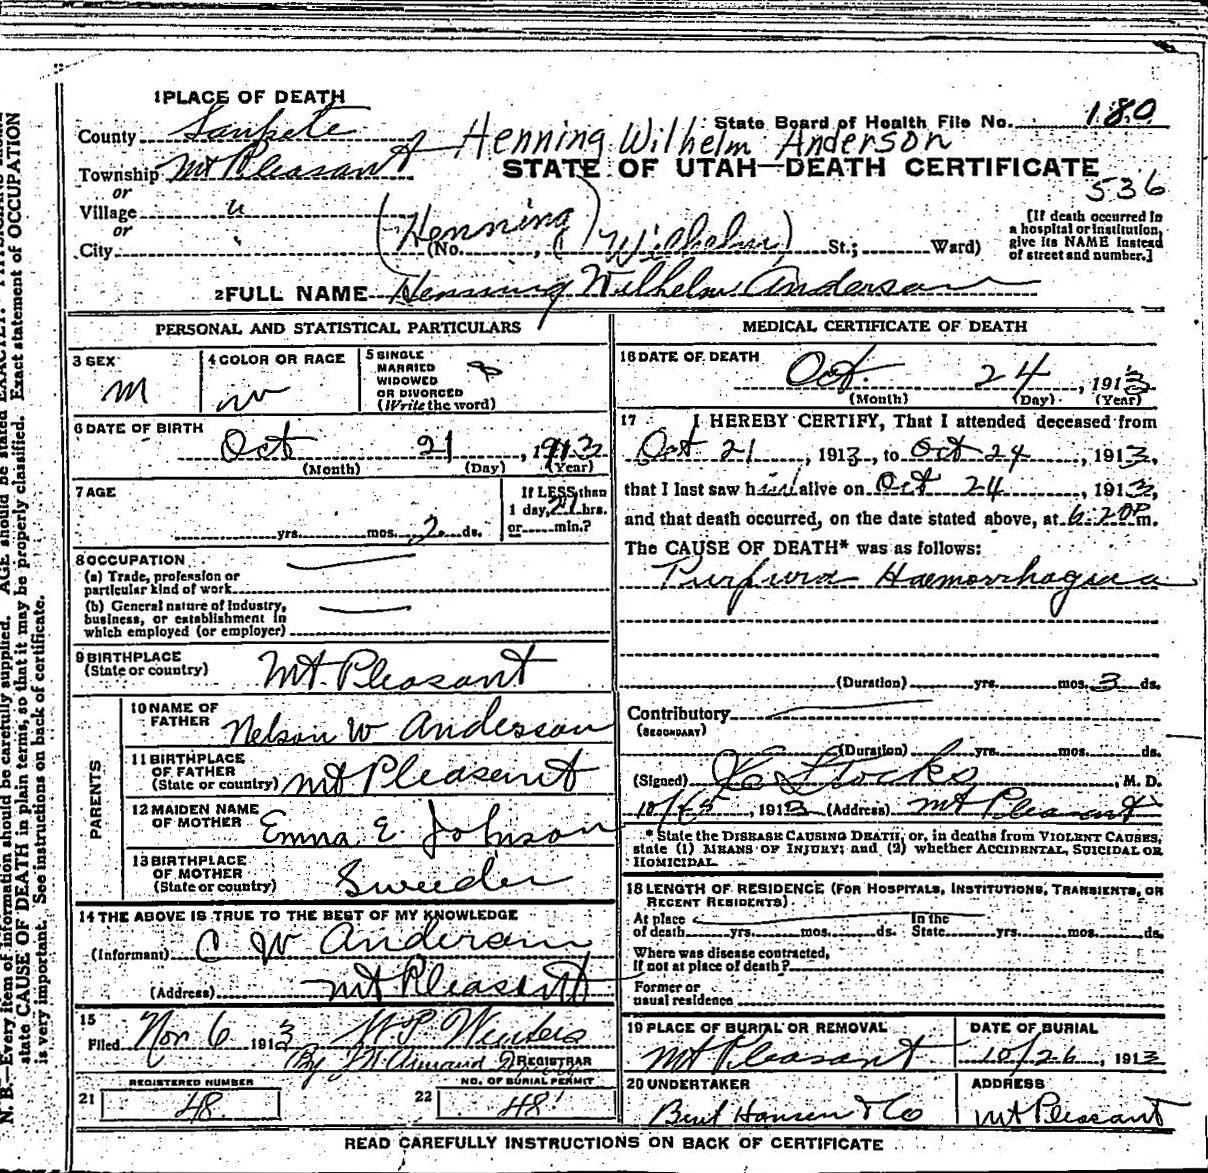 1 PLACE OF DEATH
State Board of Health File No. 180
County Sanpete
Henning Wilhelm Anderson
Township Mt Pleasant
STATE OF UTAH—DEATH CERTIFICATE
536
or
Village "
or
City
(Henning) (Wilhelm)
(No. , St.; Ward)
[If death occurred in
a hospital or institution,
give its NAME instead
of street and number.]
2 FULL NAME Henning Wilhelm Anderson
PERSONAL AND STATISTICAL PARTICULARS
3 SEX
M
4 COLOR OR RACE
W
5 SINGLE
MARRIED
WIDOWED
OR DIVORCED
(Write the word)
S
6 DATE OF BIRTH
Oct 21, 1913
(Month) (Day) (Year)
7 AGE
yrs. mos. 2 ds.
If LESS than
1 day, 21 hrs.
or min.?
8 OCCUPATION
(a) Trade, profession or
particular kind of work
(b) General nature of Industry,
business, or establishment in
which employed (or employer)
9 BIRTHPLACE
(State or country) Mt. Pleasant
PARENTS
10 NAME OF
FATHER Nelson W Anderson
11 BIRTHPLACE
OF FATHER
(State or country) Mt Pleasant
12 MAIDEN NAME
OF MOTHER Emma E Johnson
13 BIRTHPLACE
OF MOTHER
(State or country) Sweeden
14 THE ABOVE IS TRUE TO THE BEST OF MY KNOWLEDGE
(Informant) C W Anderson
(Address) Mt Pleasant
15
Filed Nov 6 1913
By REGISTRAR
REGISTERED NUMBER
21 48
NO. OF BURIAL PERMIT
22 48
MEDICAL CERTIFICATE OF DEATH
16 DATE OF DEATH
Oct. 24, 1913
(Month) (Day) (Year)
17 I HEREBY CERTIFY, That I attended deceased from
Oct 21, 1913, to Oct 24, 1913,
that I last saw him alive on Oct 24, 1913,
and that death occurred, on the date stated above, at 6:20 P m.
The CAUSE OF DEATH* was as follows:
Purpura Haemorrhagica
(Duration) yrs. mos. 3 ds.
Contributory
(SECONDARY)
(Duration) yrs. mos. ds.
(Signed) Stocks, M. D.
10/25, 1913 (Address) Mt Pleasant
* State the DISEASE CAUSING DEATH, or, in deaths from VIOLENT CAUSES,
state (1) MEANS OF INJURY; and (2) whether ACCIDENTAL, SUICIDAL OR
HOMICIDAL.
18 LENGTH OF RESIDENCE (FOR HOSPITALS, INSTITUTIONS, TRANSIENTS, OR
RECENT RESIDENTS)
At place In the
of death yrs. mos. ds. State yrs. mos. ds.
Where was disease contracted,
If not at place of death?
Former or
usual residence
19 PLACE OF BURIAL OR REMOVAL
Mt Pleasant
DATE OF BURIAL
10/26, 1913
20 UNDERTAKER
Bent Hansen & Co
ADDRESS
Mt Pleasant
READ CAREFULLY INSTRUCTIONS ON BACK OF CERTIFICATE
N. B.—Every item of information should be carefully supplied. AGE should be stated EXACTLY.
state CAUSE OF DEATH in plain terms, so that it may be properly classified. Exact statement of OCCUPATION
is very important. See instructions on back of certificate.